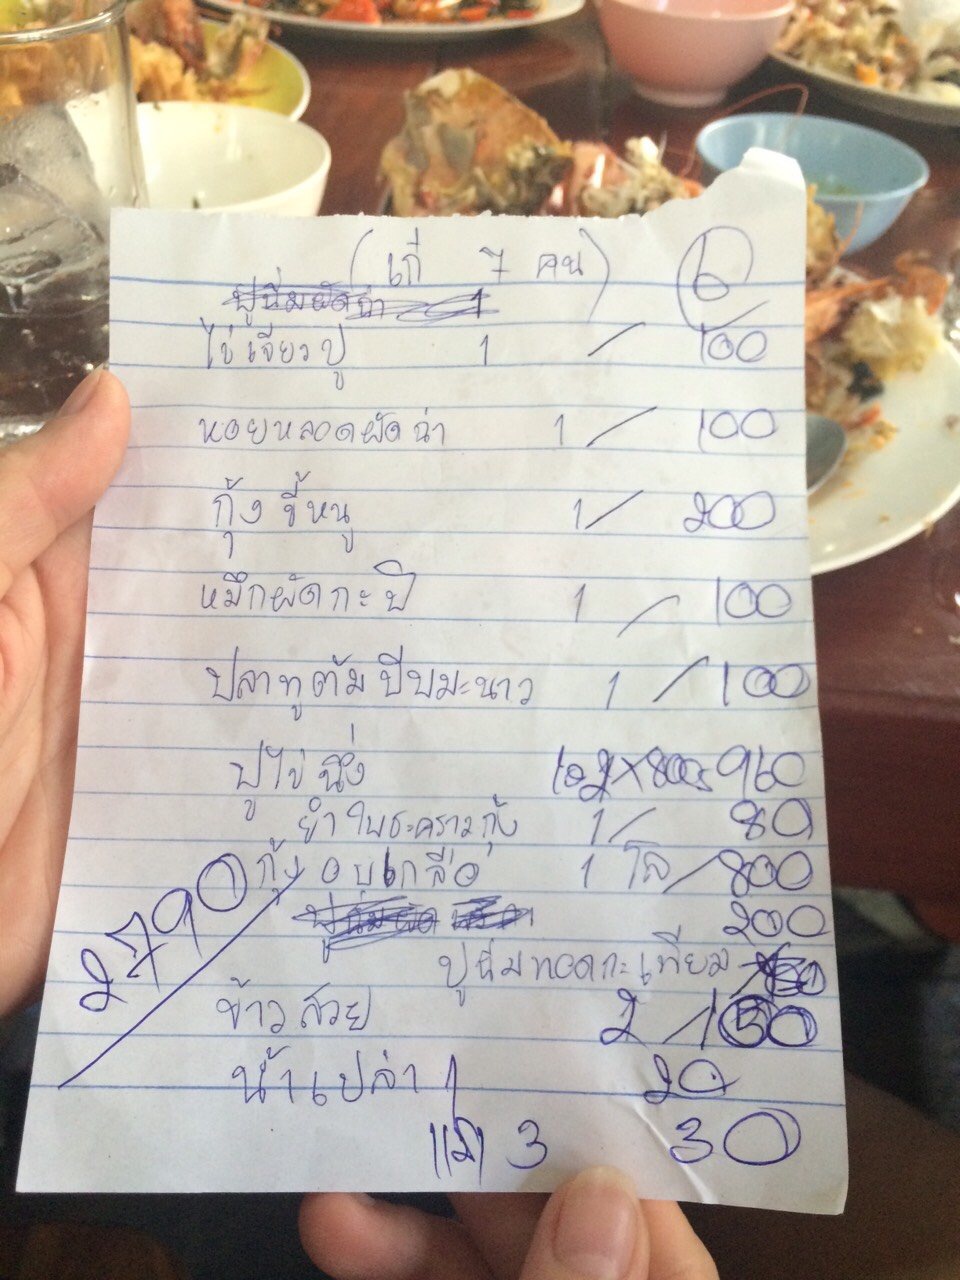 (เก๋ 7 คน) 6
ปูนิ่มผัดฉ่า 1
ไข่เจียวปู 1 / 100
หอยหลอดผัดฉ่า 1 / 100
กุ้งขี้หนู 1 / 200
หมึกผัดกะปิ 1 / 100
ปลาทูต้มบีบมะนาว 1 / 100
ปูไข่นึ่ง 1.2x800= 960
ยำใบชะครามกุ้ง 1 / 80
กุ้งอบเกลือ 1 โล / 800
200
ปูนิ่มทอดกะเทียม
2790
ข้าวสวย 2 / 150
น้ำเปล่า 1 20
3 30